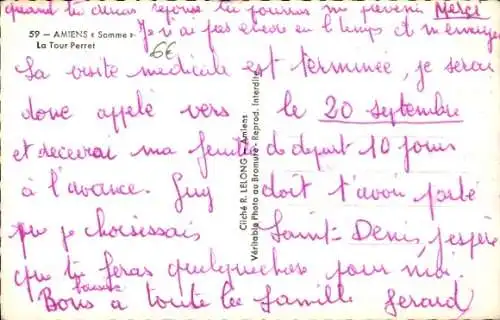 quand tu auras reçois tu pourras me prévenir Merci
59 — AMIENS « Somme »
La Tour Perret
Je n'ai pas encore eu l'temps et m'envoyer
6€
La visite médicale est terminée, je serai
donc appelé vers le 20 septembre
et recevrai ma feuille de départ 10 jours
à l'avance. Guy doit t'avoir parlé
que je choisissais Saint-Denis, j'espère
que tu feras quelquechose pour moi.
Bons baisers à toute la famille Gerard
Cliché R. LELONG - Amiens
Véritable Photo au Bromure - Reprod. Interdite